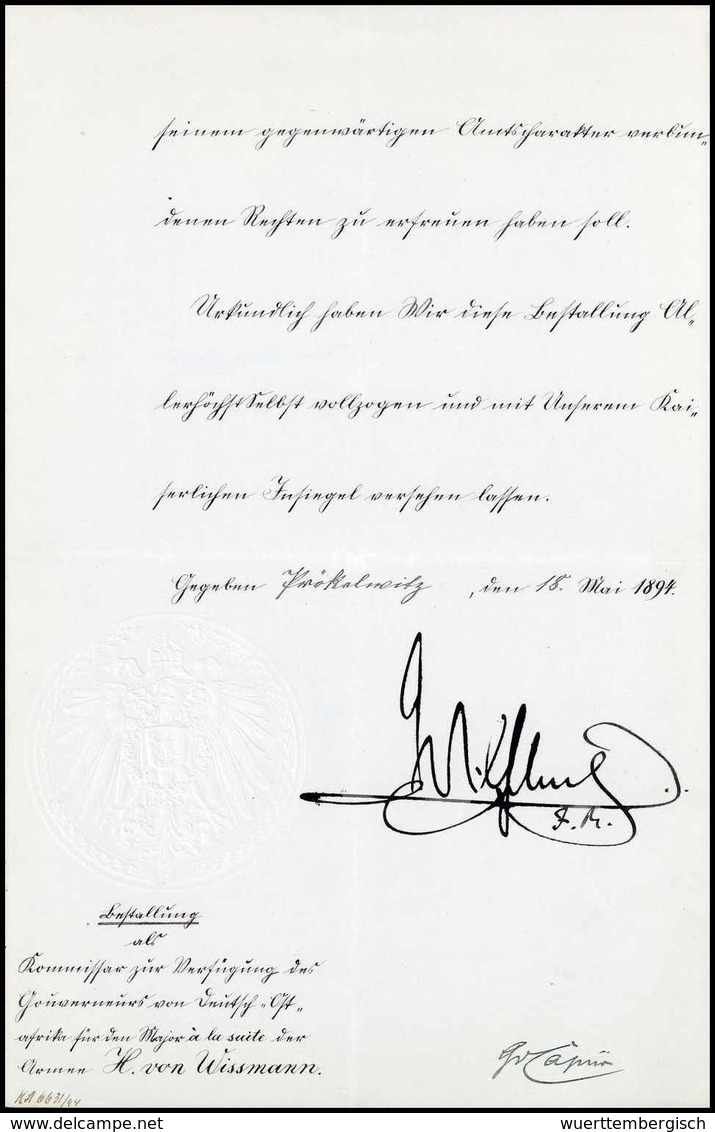 seinem gegenwärtigen Amtscharakter verbun-
denen Rechten zu erfreuen haben soll.
Urkundlich haben Wir diese Bestallung Al-
lerhöchstSelbst vollzogen und mit Unserem Kai-
serlichen Insiegel versehen lassen.
Gegeben Prökelwitz, den 18. Mai 1894.
Wilhelm
I. R.
Bestallung
als
Kommissar zur Verfügung des
Gouverneurs von Deutsch-Ost-
afrika für den Major à la suite der
Armee H. von Wissmann.
Gf Caprivi
KA 6631/94
wuerttembergisch